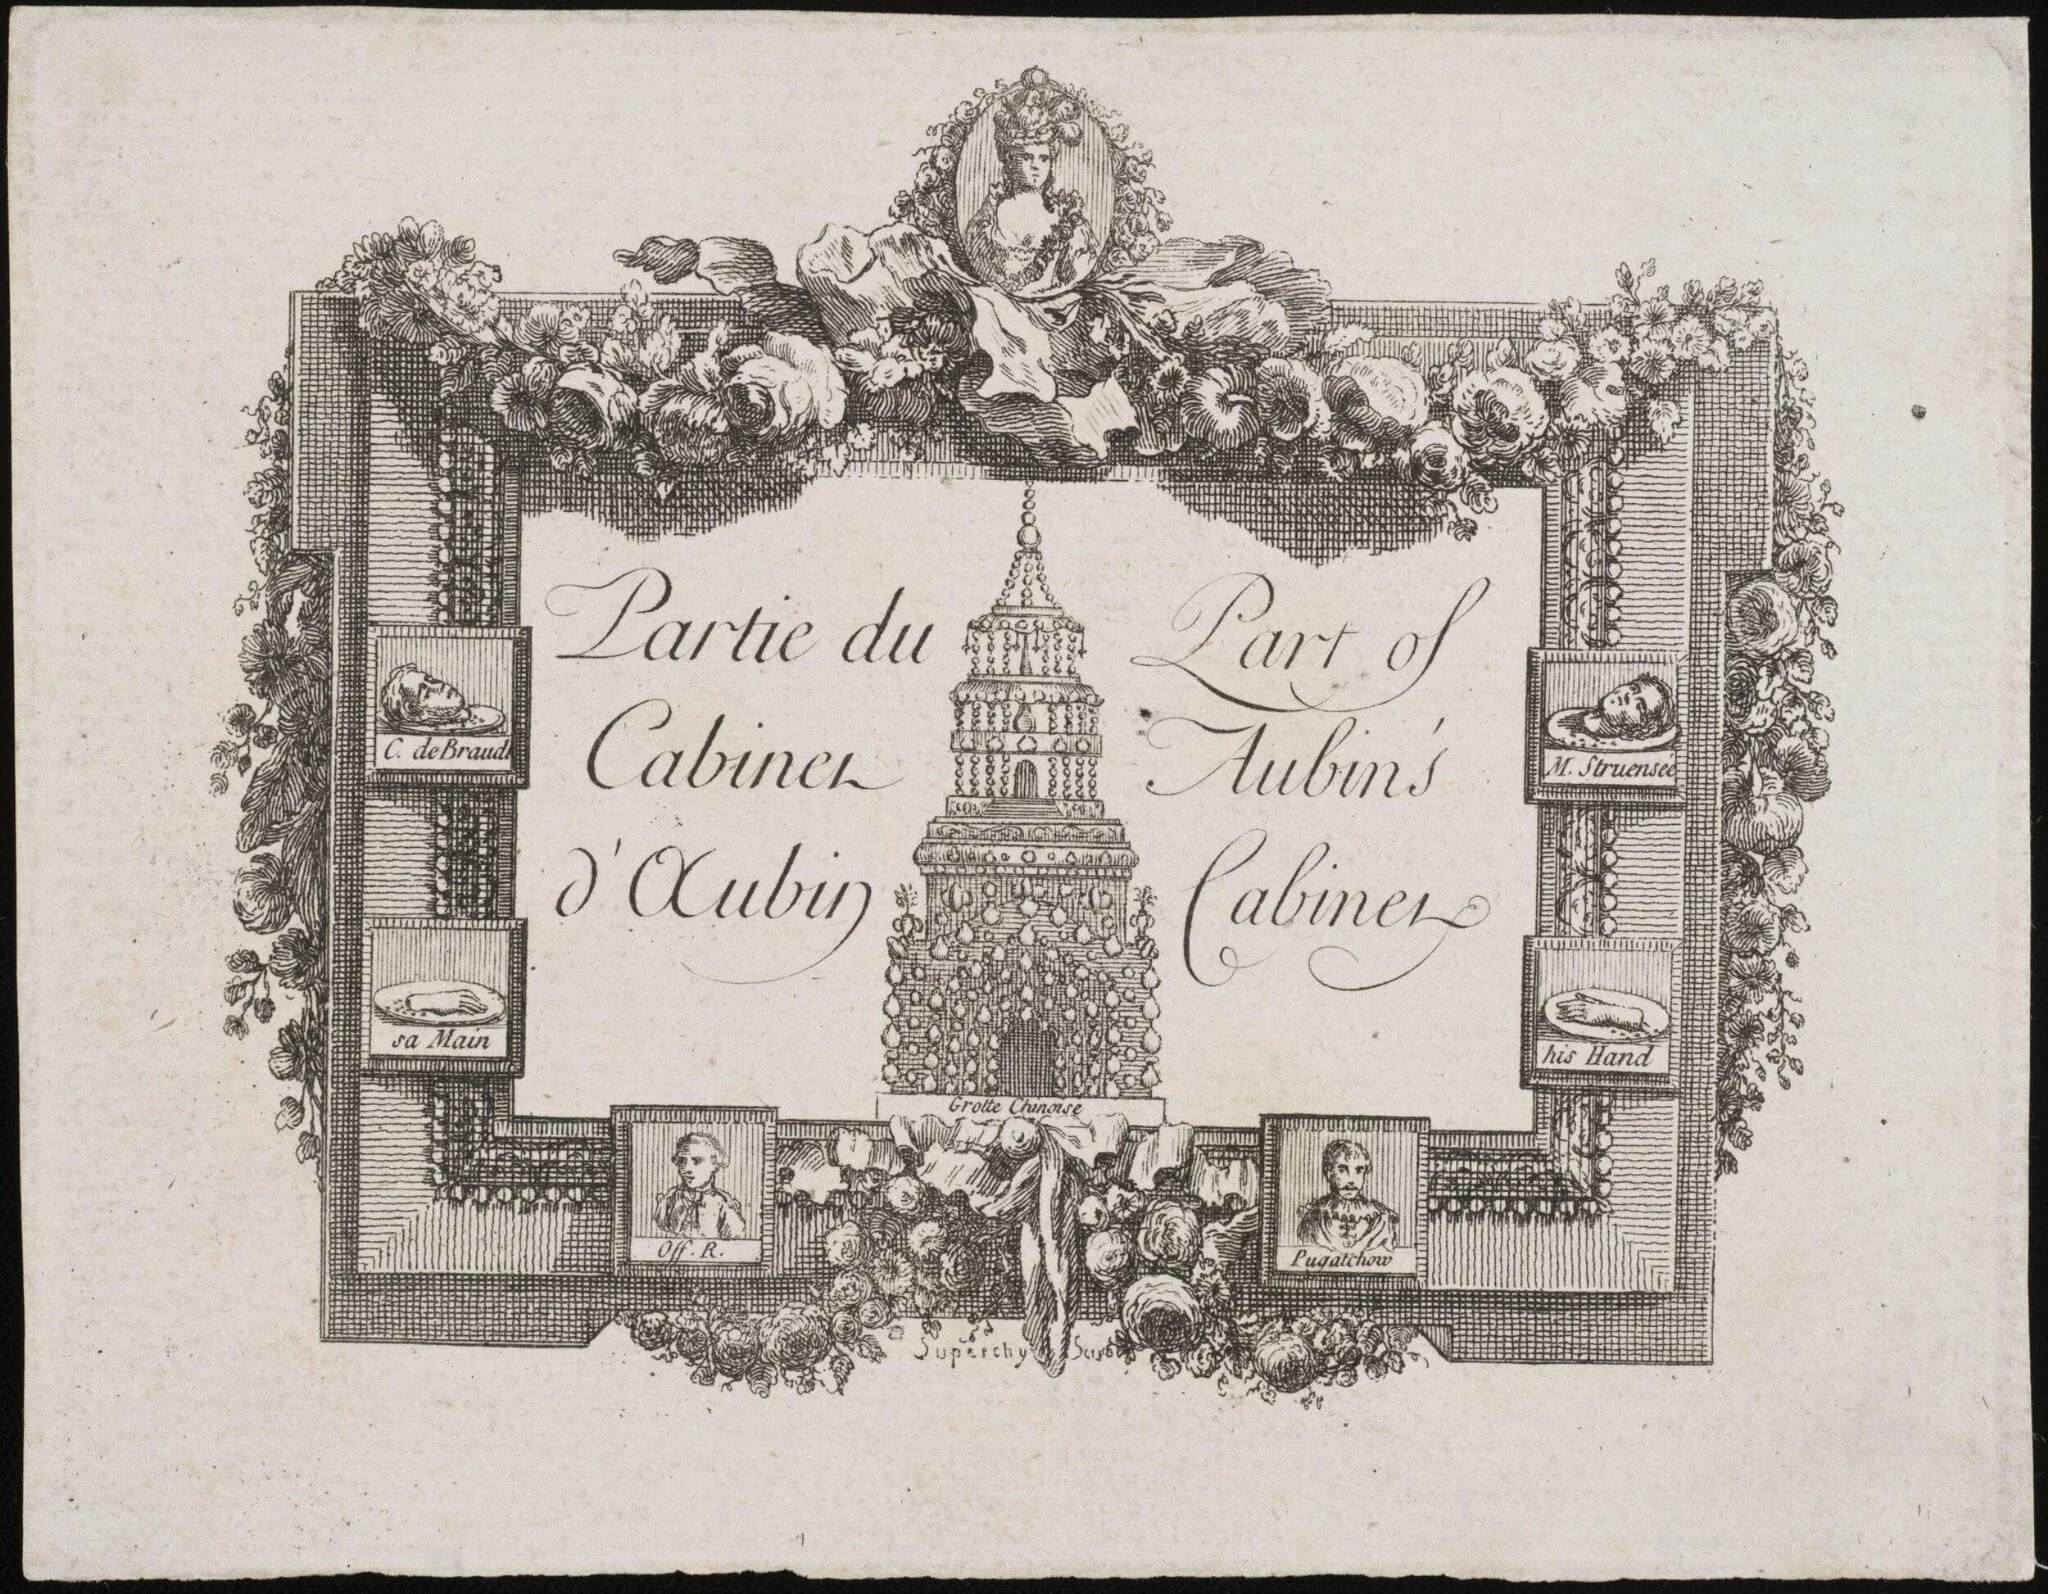 Partie du
Cabinet
d'Aubin
Part of
Aubin's
Cabinet
C. de Brand
sa Main
M. Struensee
his Hand
Grotte Chinoise
Off. R.
Pugatchow
Superchy